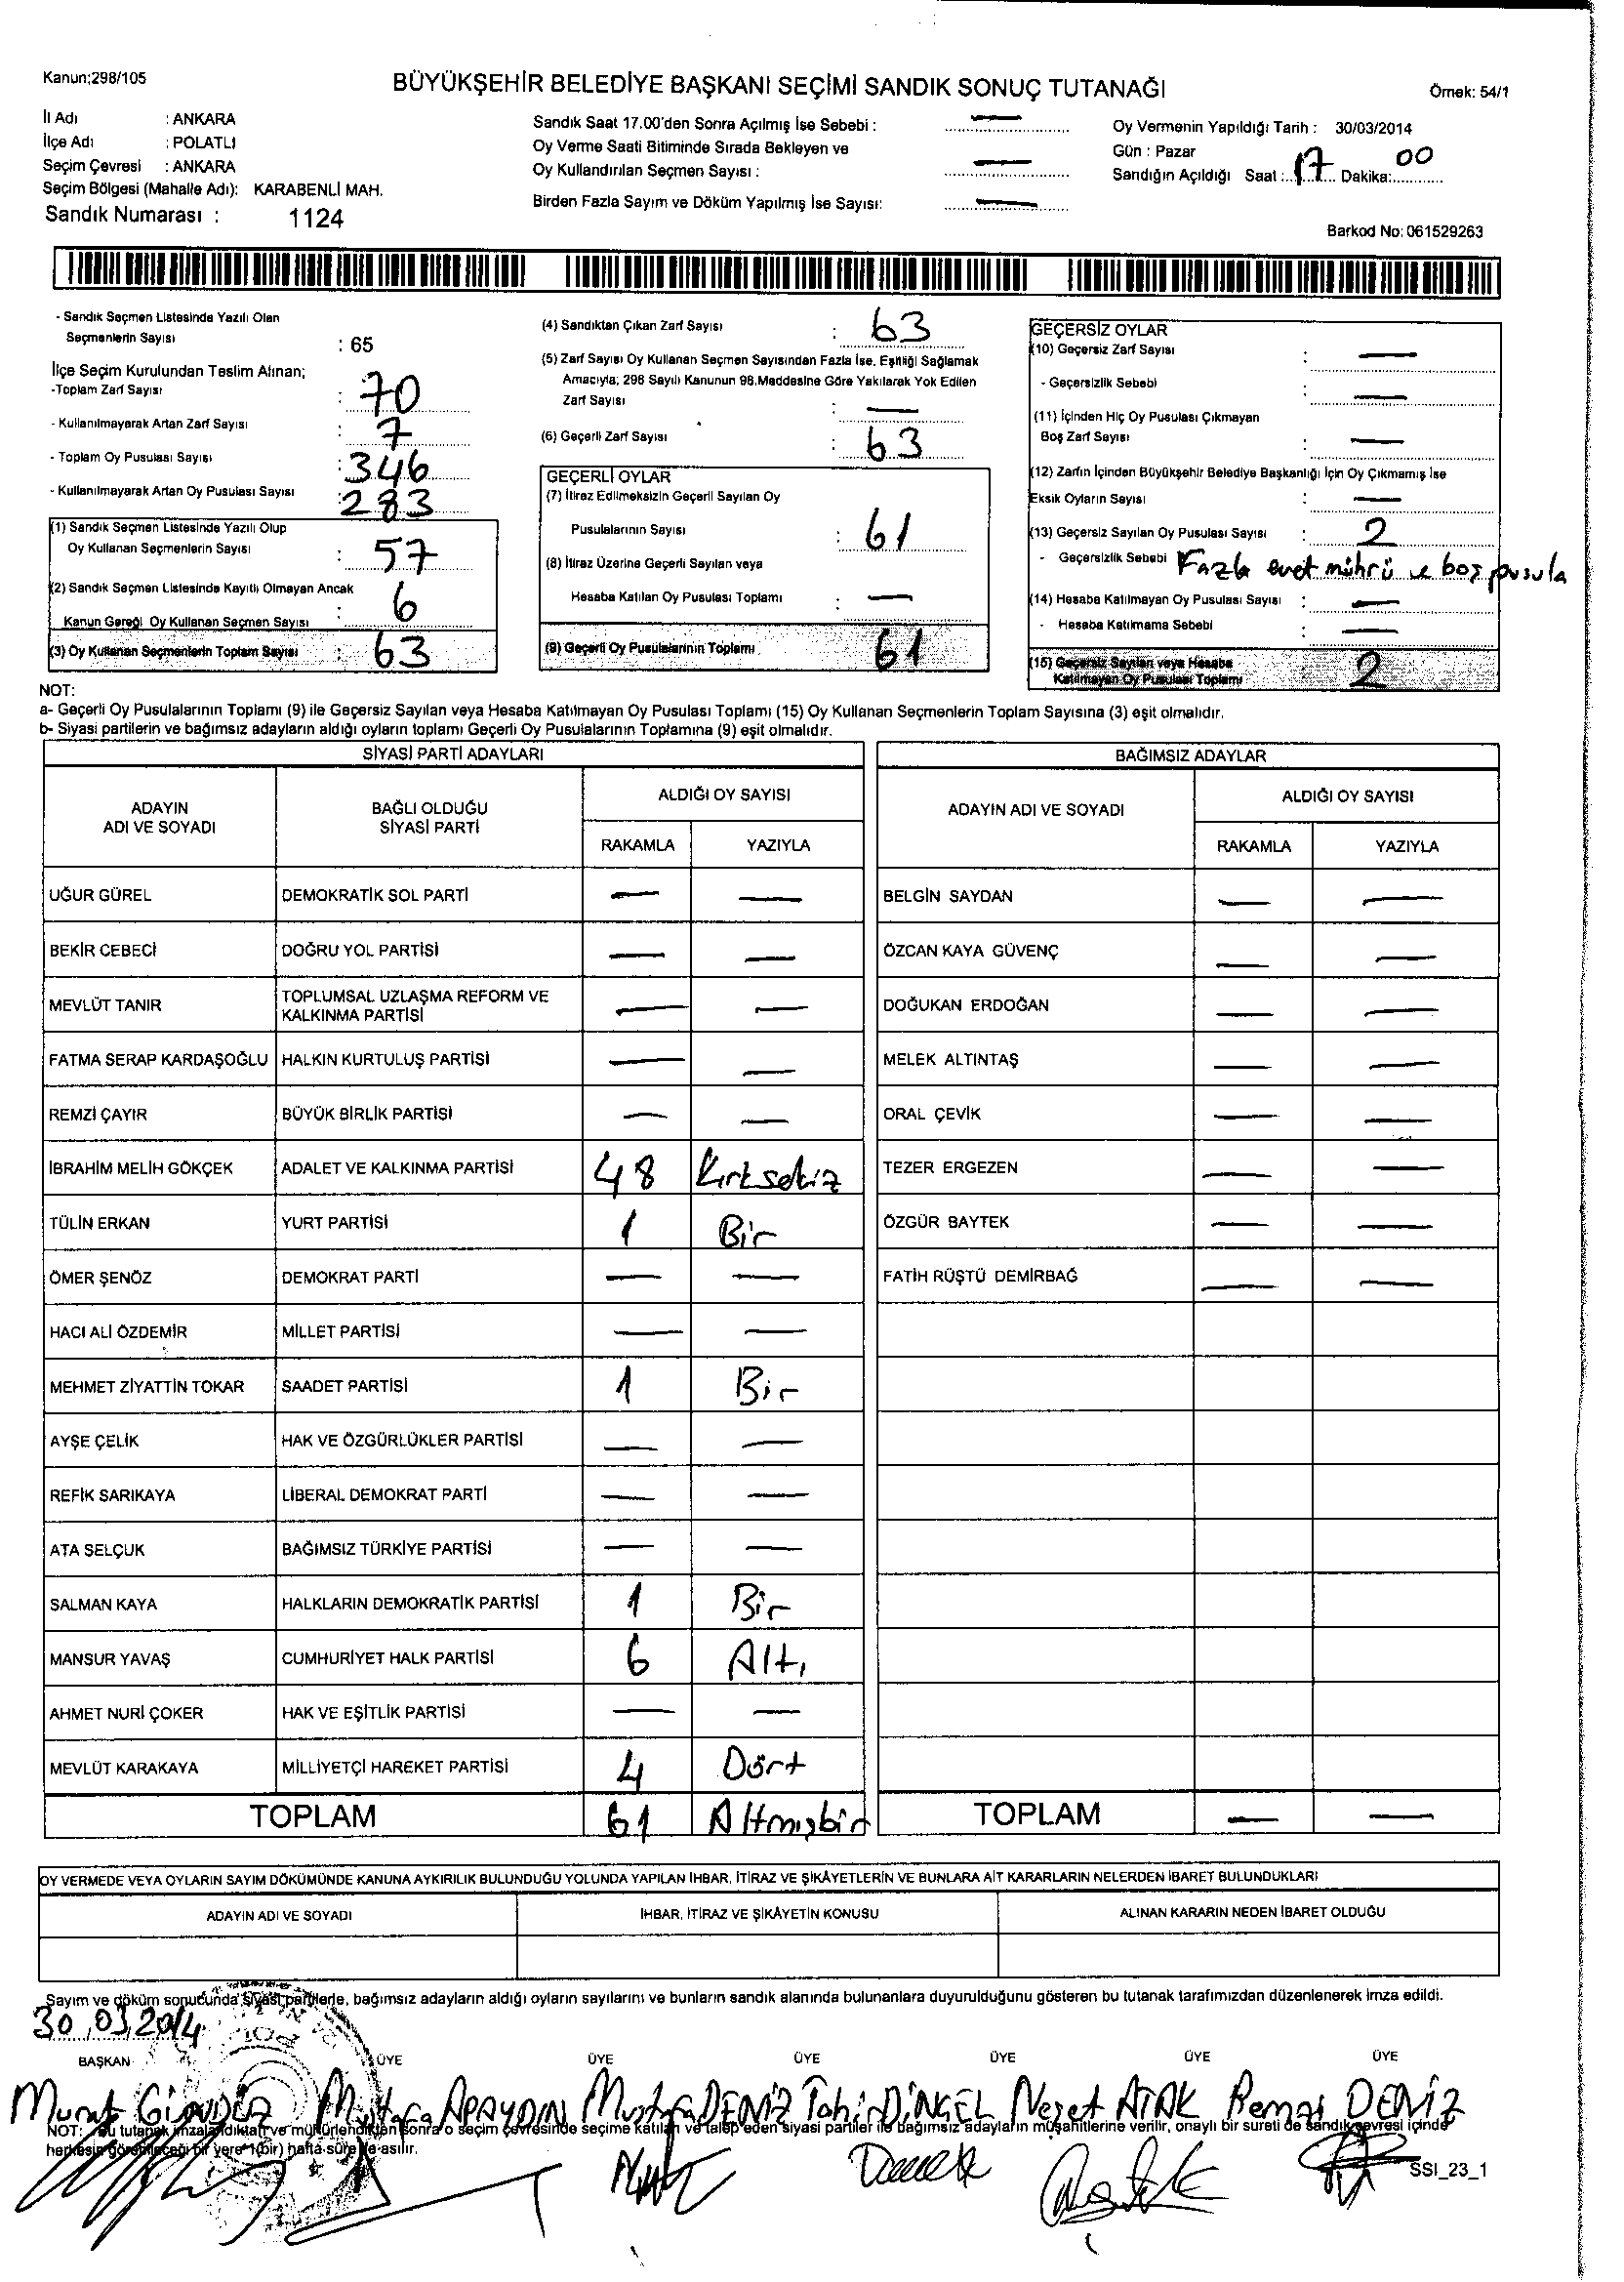 Kanun;298/105
BÜYÜKŞEHİR BELEDİYE BAŞKANI SEÇİMİ SANDIK SONUÇ TUTANAĞI
Örnek: 54/1
İl Adı : ANKARA
İlçe Adı : POLATLI
Seçim Çevresi : ANKARA
Seçim Bölgesi (Mahalle Adı): KARABENLİ MAH.
Sandık Numarası : 1124
Sandık Saat 17.00'den Sonra Açılmış İse Sebebi : —
Oy Verme Saati Bitiminde Sırada Bekleyen ve
Oy Kullandırılan Seçmen Sayısı : —
Birden Fazla Sayım ve Döküm Yapılmış İse Sayısı: —
Oy Vermenin Yapıldığı Tarih : 30/03/2014
Gün : Pazar
Sandığın Açıldığı Saat : 17 Dakika: 00
Barkod No: 061529263
- Sandık Seçmen Listesinde Yazılı Olan
Seçmenlerin Sayısı : 65
İlçe Seçim Kurulundan Teslim Alınan;
-Toplam Zarf Sayısı : 70
- Kullanılmayarak Artan Zarf Sayısı : 7
- Toplam Oy Pusulası Sayısı : 346
- Kullanılmayarak Artan Oy Pusulası Sayısı : 283
(1) Sandık Seçmen Listesinde Yazılı Olup
Oy Kullanan Seçmenlerin Sayısı : 57
(2) Sandık Seçmen Listesinde Kayıtlı Olmayan Ancak
Kanun Gereği Oy Kullanan Seçmen Sayısı : 6
(3) Oy Kullanan Seçmenlerin Toplam Sayısı : 63
(4) Sandıktan Çıkan Zarf Sayısı : 63
(5) Zarf Sayısı Oy Kullanan Seçmen Sayısından Fazla İse, Eşitliği Sağlamak
Amacıyla; 298 Sayılı Kanunun 98.Maddesine Göre Yakılarak Yok Edilen
Zarf Sayısı : —
(6) Geçerli Zarf Sayısı : 63
GEÇERLİ OYLAR
(7) İtiraz Edilmeksizin Geçerli Sayılan Oy
Pusulalarının Sayısı : 61
(8) İtiraz Üzerine Geçerli Sayılan veya
Hesaba Katılan Oy Pusulası Toplamı : —
(9) Geçerli Oy Pusulalarının Toplamı 61
GEÇERSİZ OYLAR
(10) Geçersiz Zarf Sayısı : —
- Geçersizlik Sebebi : —
(11) İçinden Hiç Oy Pusulası Çıkmayan
Boş Zarf Sayısı : —
(12) Zarfın İçinden Büyükşehir Belediye Başkanlığı İçin Oy Çıkmamış İse
Eksik Oyların Sayısı : —
(13) Geçersiz Sayılan Oy Pusulası Sayısı : 2
- Geçersizlik Sebebi Fazla evet mührü ve boş pusula
(14) Hesaba Katılmayan Oy Pusulası Sayısı : —
- Hesaba Katılmama Sebebi : —
(15) Geçersiz Sayılan veya Hesaba
Katılmayan Oy Pusulası Toplamı 2
NOT:
a- Geçerli Oy Pusulalarının Toplamı (9) ile Geçersiz Sayılan veya Hesaba Katılmayan Oy Pusulası Toplamı (15) Oy Kullanan Seçmenlerin Toplam Sayısına (3) eşit olmalıdır.
b- Siyasi partilerin ve bağımsız adayların aldığı oyların toplamı Geçerli Oy Pusulalarının Toplamına (9) eşit olmalıdır.
SİYASİ PARTİ ADAYLARI
ADAYIN ADI VE SOYADI BAĞLI OLDUĞU SİYASİ PARTİ ALDIĞI OY SAYISI
RAKAMLA YAZIYLA
UĞUR GÜREL DEMOKRATİK SOL PARTİ — —
BEKİR CEBECİ DOĞRU YOL PARTİSİ — —
MEVLÜT TANIR TOPLUMSAL UZLAŞMA REFORM VE KALKINMA PARTİSİ — —
FATMA SERAP KARDAŞOĞLU HALKIN KURTULUŞ PARTİSİ — —
REMZİ ÇAYIR BÜYÜK BİRLİK PARTİSİ — —
İBRAHİM MELİH GÖKÇEK ADALET VE KALKINMA PARTİSİ 48 Kırksekiz
TÜLİN ERKAN YURT PARTİSİ 1 Bir
ÖMER ŞENÖZ DEMOKRAT PARTİ — —
HACI ALİ ÖZDEMİR MİLLET PARTİSİ — —
MEHMET ZİYATTİN TOKAR SAADET PARTİSİ 1 Bir
AYŞE ÇELİK HAK VE ÖZGÜRLÜKLER PARTİSİ — —
REFİK SARIKAYA LİBERAL DEMOKRAT PARTİ — —
ATA SELÇUK BAĞIMSIZ TÜRKİYE PARTİSİ — —
SALMAN KAYA HALKLARIN DEMOKRATİK PARTİSİ 1 Bir
MANSUR YAVAŞ CUMHURİYET HALK PARTİSİ 6 Altı
AHMET NURİ ÇOKER HAK VE EŞİTLİK PARTİSİ — —
MEVLÜT KARAKAYA MİLLİYETÇİ HAREKET PARTİSİ 4 Dört
TOPLAM 61 Altmışbir
BAĞIMSIZ ADAYLAR
ADAYIN ADI VE SOYADI ALDIĞI OY SAYISI
RAKAMLA YAZIYLA
BELGİN SAYDAN — —
ÖZCAN KAYA GÜVENÇ — —
DOĞUKAN ERDOĞAN — —
MELEK ALTINTAŞ — —
ORAL ÇEVİK — —
TEZER ERGEZEN — —
ÖZGÜR BAYTEK — —
FATİH RÜŞTÜ DEMİRBAĞ — —
TOPLAM — —
OY VERMEDE VEYA OYLARIN SAYIM DÖKÜMÜNDE KANUNA AYKIRILIK BULUNDUĞU YOLUNDA YAPILAN İHBAR, İTİRAZ VE ŞİKÂYETLERİN VE BUNLARA AİT KARARLARIN NELERDEN İBARET BULUNDUKLARI
ADAYIN ADI VE SOYADI İHBAR, İTİRAZ VE ŞİKÂYETİN KONUSU ALINAN KARARIN NEDEN İBARET OLDUĞU
Sayım ve döküm sonucunda siyasi partilerle, bağımsız adayların aldığı oyların sayılarını ve bunların sandık alanında bulunanlara duyurulduğunu gösteren bu tutanak tarafımızdan düzenlenerek imza edildi.
30.03.2014
BAŞKAN ÜYE ÜYE ÜYE ÜYE ÜYE ÜYE
Murat Gündüz Mustafa APAYDIN Mustafa DENİZ Tahir DİNGEL Neşet ATAK Remzi DENİZ
NOT: Bu tutanak imzalandıktan ve mühürlendikten sonra o seçim çevresinde seçime katılan ve talep eden siyasi partiler ile bağımsız adayların müşahitlerine verilir, onaylı bir sureti de sandık çevresi içinde
herkesin görebileceği bir yere 1(bir) hafta süre ile asılır.
SSI_23_1